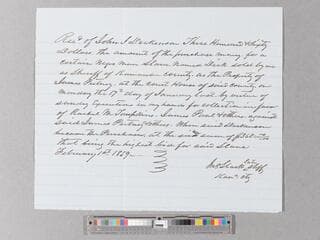 Recd of John J Dickinson Three Hundred & Sixty
Dollars the amount of the purchase money for a
certain Negro man Slave named Dick sold by me
as Sheriff of Kanawha county as the Property of
James Putney, at the Court House of said county on
Monday the 17th day of January last by virtue of
sundry Executions in my hands for collection in favor
of Rachel M Tompkins. James & others against
said James Putney & others. When said Dickinson
became the Purchaser at the said sum of
that being the highest bid for said Slave
February 1st 1859
Kan. Cty